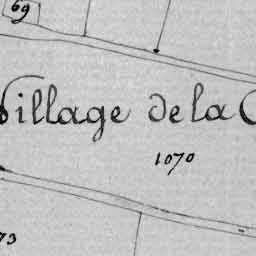 69
Village de la
1070
73